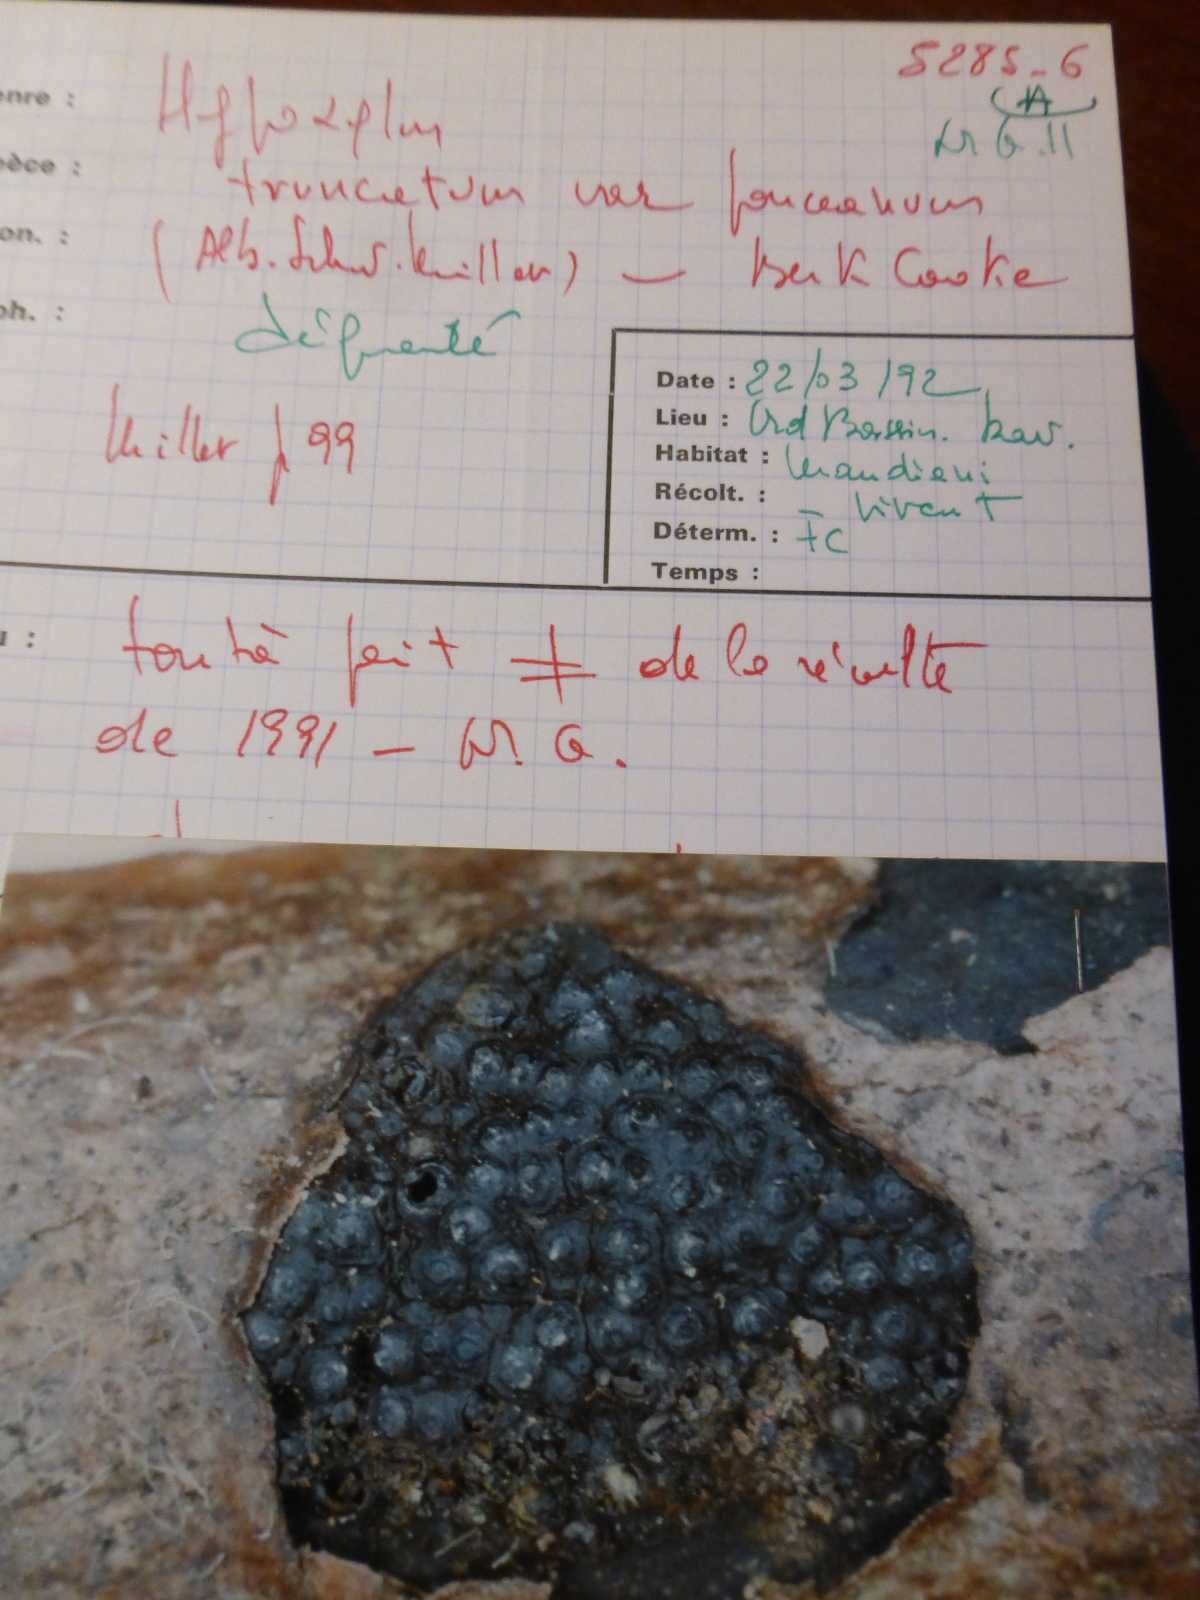 5285-6
A
W G.11
enre : Hypoxylon
èce : truncatum var pouceanum
on. : (Alb. Schw. Miller) — Berk Cooke
oh. :
Miller p 99
Date : 22/03/92
Lieu : Grd Bassin. Rav.
Habitat : Mandieni
Récolt. : Vivent
Déterm. : FC
Temps :
u : tout à fait ≠ de la récolte
de 1991 — W. G.